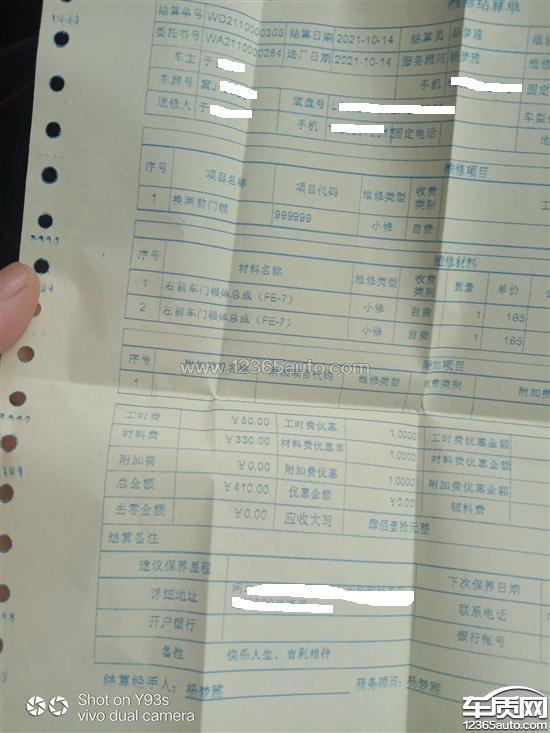 维修结算单
结算单号 WD2110000305 结算日期 2021-10-14 结算员 杨梦雅
委托书号 WA2110000284 进厂日期 2021-10-14 服务顾问 杨梦雅
车主 于 手机 固定
车牌号 冀J 底盘号 L
送修人 于 手机 固定电话 车型
维修项目
序号 项目名称 项目代码 维修类型 收费类别 工
1 换两前门锁 999999 小修 自费
维修材料
序号 材料名称 维修类型 收费类别 数量 单价
1 右前车门锁体总成（FE-7） 小修 自费 1 165
2 左前车门锁体总成（FE-7） 小修 自费 1 165
附加项目
序号 附加项目名称 附加项目代码 维修类型 收费类别 附加费
1
www.12365auto.com
工时费 ￥80.00 工时费优惠 1.0000 工时费优惠金额
材料费 ￥330.00 材料费优惠率 1.0000 材料费优惠金额
附加费 ￥0.00 附加费优惠 1.0000 附加费优惠金额
总金额 ￥410.00 优惠金额 ￥0.00 辅料费
去零金额 ￥0.00 应收大写 肆佰壹拾元整
结算备注
建议保养里程 下次保养日期
详细地址 河 联系电话
开户银行 银行帐号
备注 快乐人生，吉利相伴
结算经手人：杨梦雅 服务顾问：杨梦雅
Shot on Y93s
vivo dual camera
车质网
12365auto.com